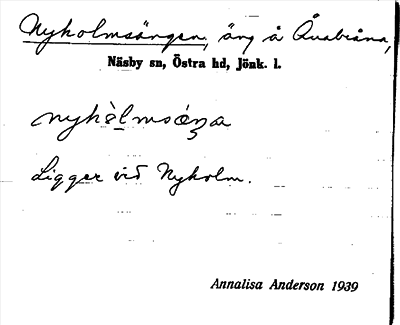 Nyholmsängen, äng å Qvabräna,
Näsby sn, Östra hd, Jönk. l.
nyhòlmsäŋa
Ligger vid Nyholm.
Annalisa Anderson 1939